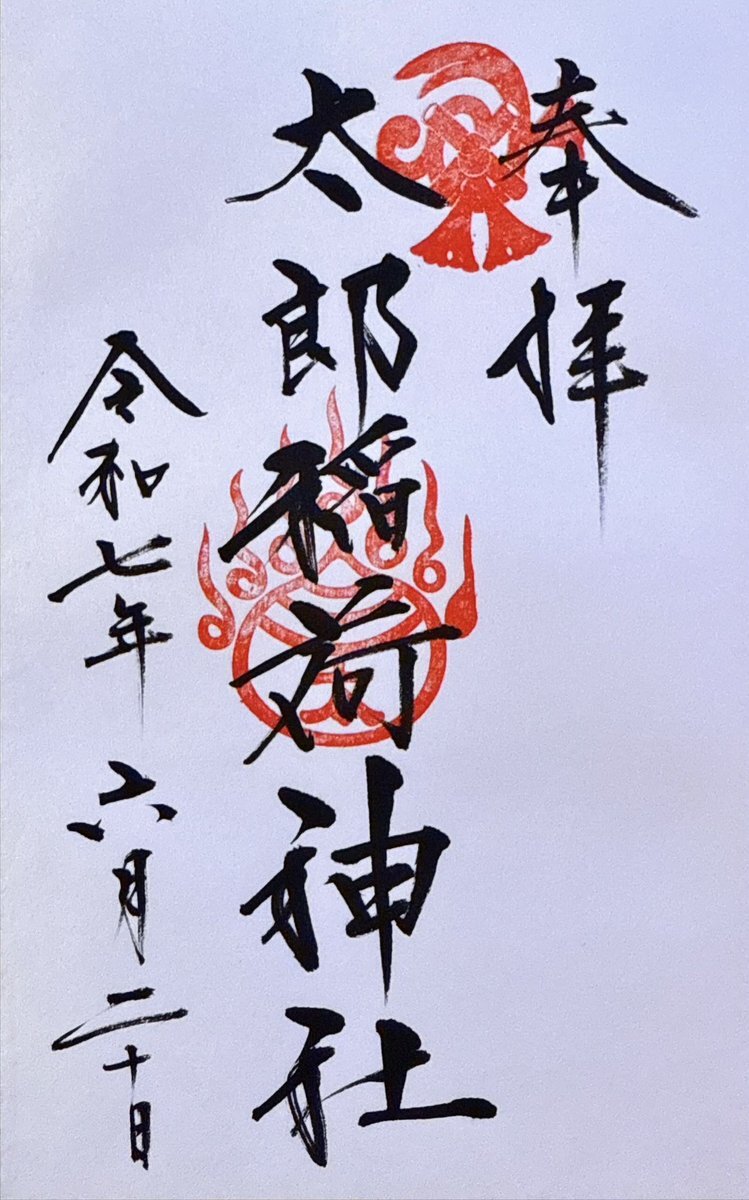 奉拝
太郎稲荷神社
令和七年六月二十日